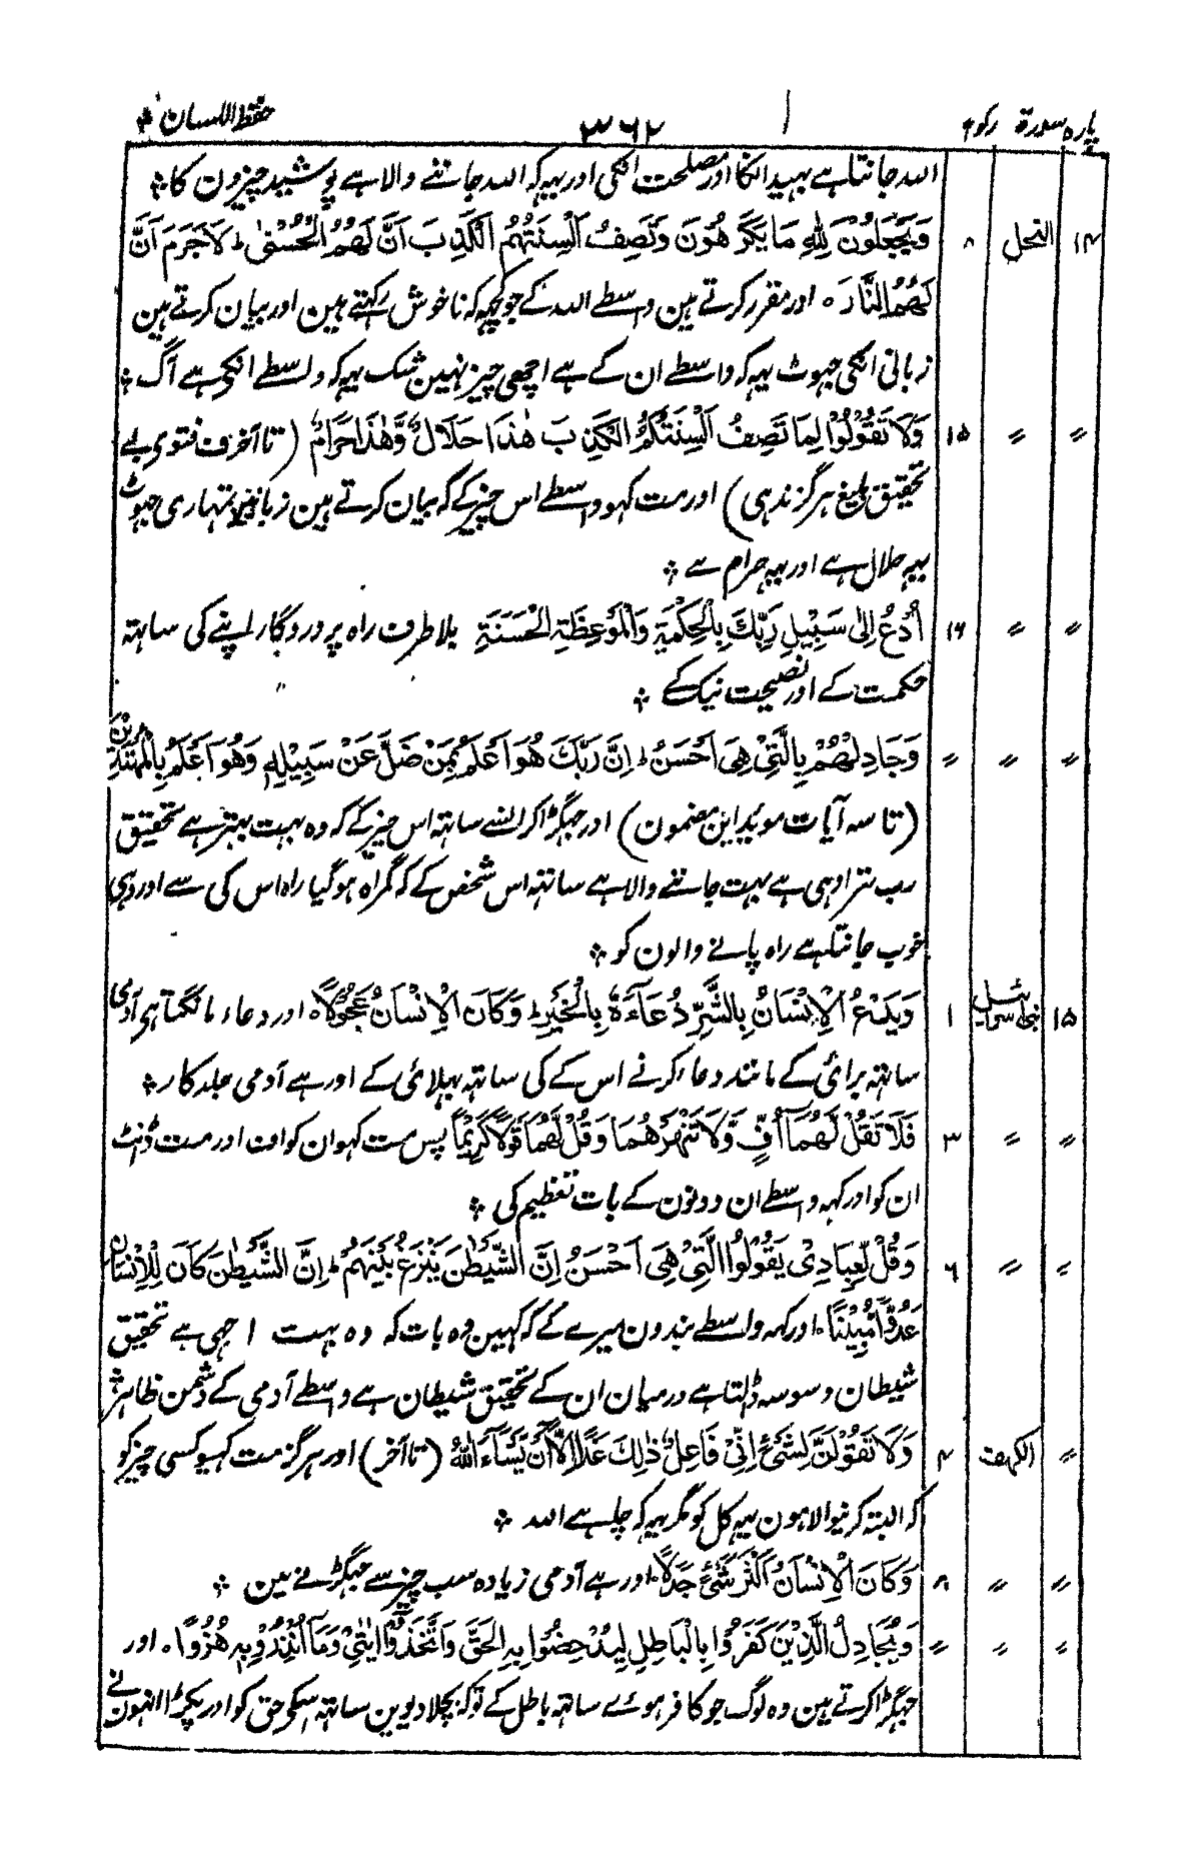 پارہ سورۃ رکوع ۳۶۲ حفظ اللسان
اللہ جانتا ہے بہید انکا اور مصلحت انکی اور یہہ کہ اللہ جاننے والا ہے پوشیدہ چیزون کا ؞
۱۴ النحل ۸ وَيَجْعَلُوْنَ لِلّٰهِ مَا يَكْرَهُوْنَ وَتَصِفُ اَلْسِنَتُهُمُ الْكَذِبَ اَنَّ لَهُمُ الْحُسْنٰى ط لَا جَرَمَ اَنَّ
لَهُمُ النَّارَ ہ اور مقرر کرتے ہین واسطے اللہ کے جو کچہہ کہ ناخوش رکہتے ہین اور بیان کرتے ہین
زبانی انکی جہوٹ یہہ کہ واسطے ان کے ہے اچھی چیز نہین شک یہہ کہ واسطے انکی ہے آگ ؞
〃 〃 ۱۵ وَلَا تَقُوْلُوْا لِمَا تَصِفُ اَلْسِنَتُكُمُ الْكَذِبَ هٰذَا حَلَالٌ وَّهٰذَا حَرَامٌ (تا آخر ف فتوی بے
تحقیق بلیغ ہرگز ندہی) اور مت کہو واسطے اس چیز کے کہ بیان کرتے ہین زبانین تمہاری جہوٹ
یہہ حلال ہے اور یہہ حرام سے ؞
〃 〃 ۱۶ اُدْعُ اِلٰى سَبِيْلِ رَبِّكَ بِالْحِكْمَةِ وَالْمَوْعِظَةِ الْحَسَنَةِ بلا طرف راہ پروردگار اپنے کی ساتہہ
حکمت کے اور نصیحت نیک کے ؞
〃 〃 〃 وَجَادِلْهُمْ بِالَّتِىْ هِىَ اَحْسَنُ ط اِنَّ رَبَّكَ هُوَ اَعْلَمُ بِمَنْ ضَلَّ عَنْ سَبِيْلِهٖ وَهُوَ اَعْلَمُ بِالْمُهْتَدِيْنَ
(تا سہ آیات موید این مضمون) اور جہگڑا کر النسے ساتہہ اس چیز کے کہ وہ بہت بہتر ہے تحقیق
رب تیرا وہی ہے بہت جاننے والا ہے ساتہہ اس شخص کے کہ گمراہ ہو گیا راہ اس کی سے اور وہی
خوب جانتا ہے راہ پانے والون کو ؞
۱۵ بنی اسرائیل ۱ وَيَدْعُ الْاِنْسَانُ بِالشَّرِّ دُعَآءَهٗ بِالْخَيْرِ ط وَكَانَ الْاِنْسَانُ عَجُوْلًا ہ اور دعاء مانگتا ہر آدمی
ساتہہ برائی کے مانند دعاء کرنے اس کے کی ساتہہ بہلائی کے اور ہے آدمی جلد کار ؞
〃 〃 ۳ فَلَا تَقُلْ لَّهُمَآ اُفٍّ وَّلَا تَنْهَرْهُمَا وَقُلْ لَّهُمَا قَوْلًا كَرِيْمًا پس مت کہو ان کو اف اور مت ڈنٹ
ان کو اور کہہ واسطے ان دونون کے بات تعظیم کی ؞
〃 〃 ۶ وَقُلْ لِّعِبَادِىْ يَقُوْلُوا الَّتِىْ هِىَ اَحْسَنُ اِنَّ الشَّيْطٰنَ يَنْزَغُ بَيْنَهُمْ ط اِنَّ الشَّيْطٰنَ كَانَ لِلْاِنْسَانِ
عَدُوًّا مُّبِيْنًا ۰ اور کہہ واسطے بندون میرے کے کہ کہین وہ بات کہ وہ بہت اچہی ہے تحقیق
شیطان وسوسہ ڈالتا ہے درمیان ان کے تحقیق شیطان ہے واسطے آدمی کے دشمن ظاہر ؞
〃 الکہف ۴ وَلَا تَقُوْلَنَّ لِشَىْءٍ اِنِّىْ فَاعِلٌ ذٰلِكَ غَدًا اِلَّآ اَنْ يَّشَآءَ اللّٰهُ (تا آخر) اور ہرگز مت کہیو کسی چیز کو
کہ البتہ کرنیوالا ہون یہہ کل کو مگر یہہ کہ چاہے اللہ ؞
〃 〃 ۸ وَكَانَ الْاِنْسَانُ اَكْثَرَ شَىْءٍ جَدَلًا ۰ اور ہے آدمی زیادہ سب چیز سے جہگڑنے مین ؞
〃 〃 〃 وَيُجَادِلُ الَّذِيْنَ كَفَرُوْا بِالْبَاطِلِ لِيُدْحِضُوْا بِهِ الْحَقَّ وَاتَّخَذُوْٓا اٰيٰتِىْ وَمَآ اُنْذِرُوْا بِهٖ هُزُوًا ۰ اور
جہگڑا کرتے ہین وہ لوگ جو کافر ہوئے ساتہہ باطل کے تو کہ بچلا دیوین ساتہہ اسکی حق کو اور پکڑا انہون نے